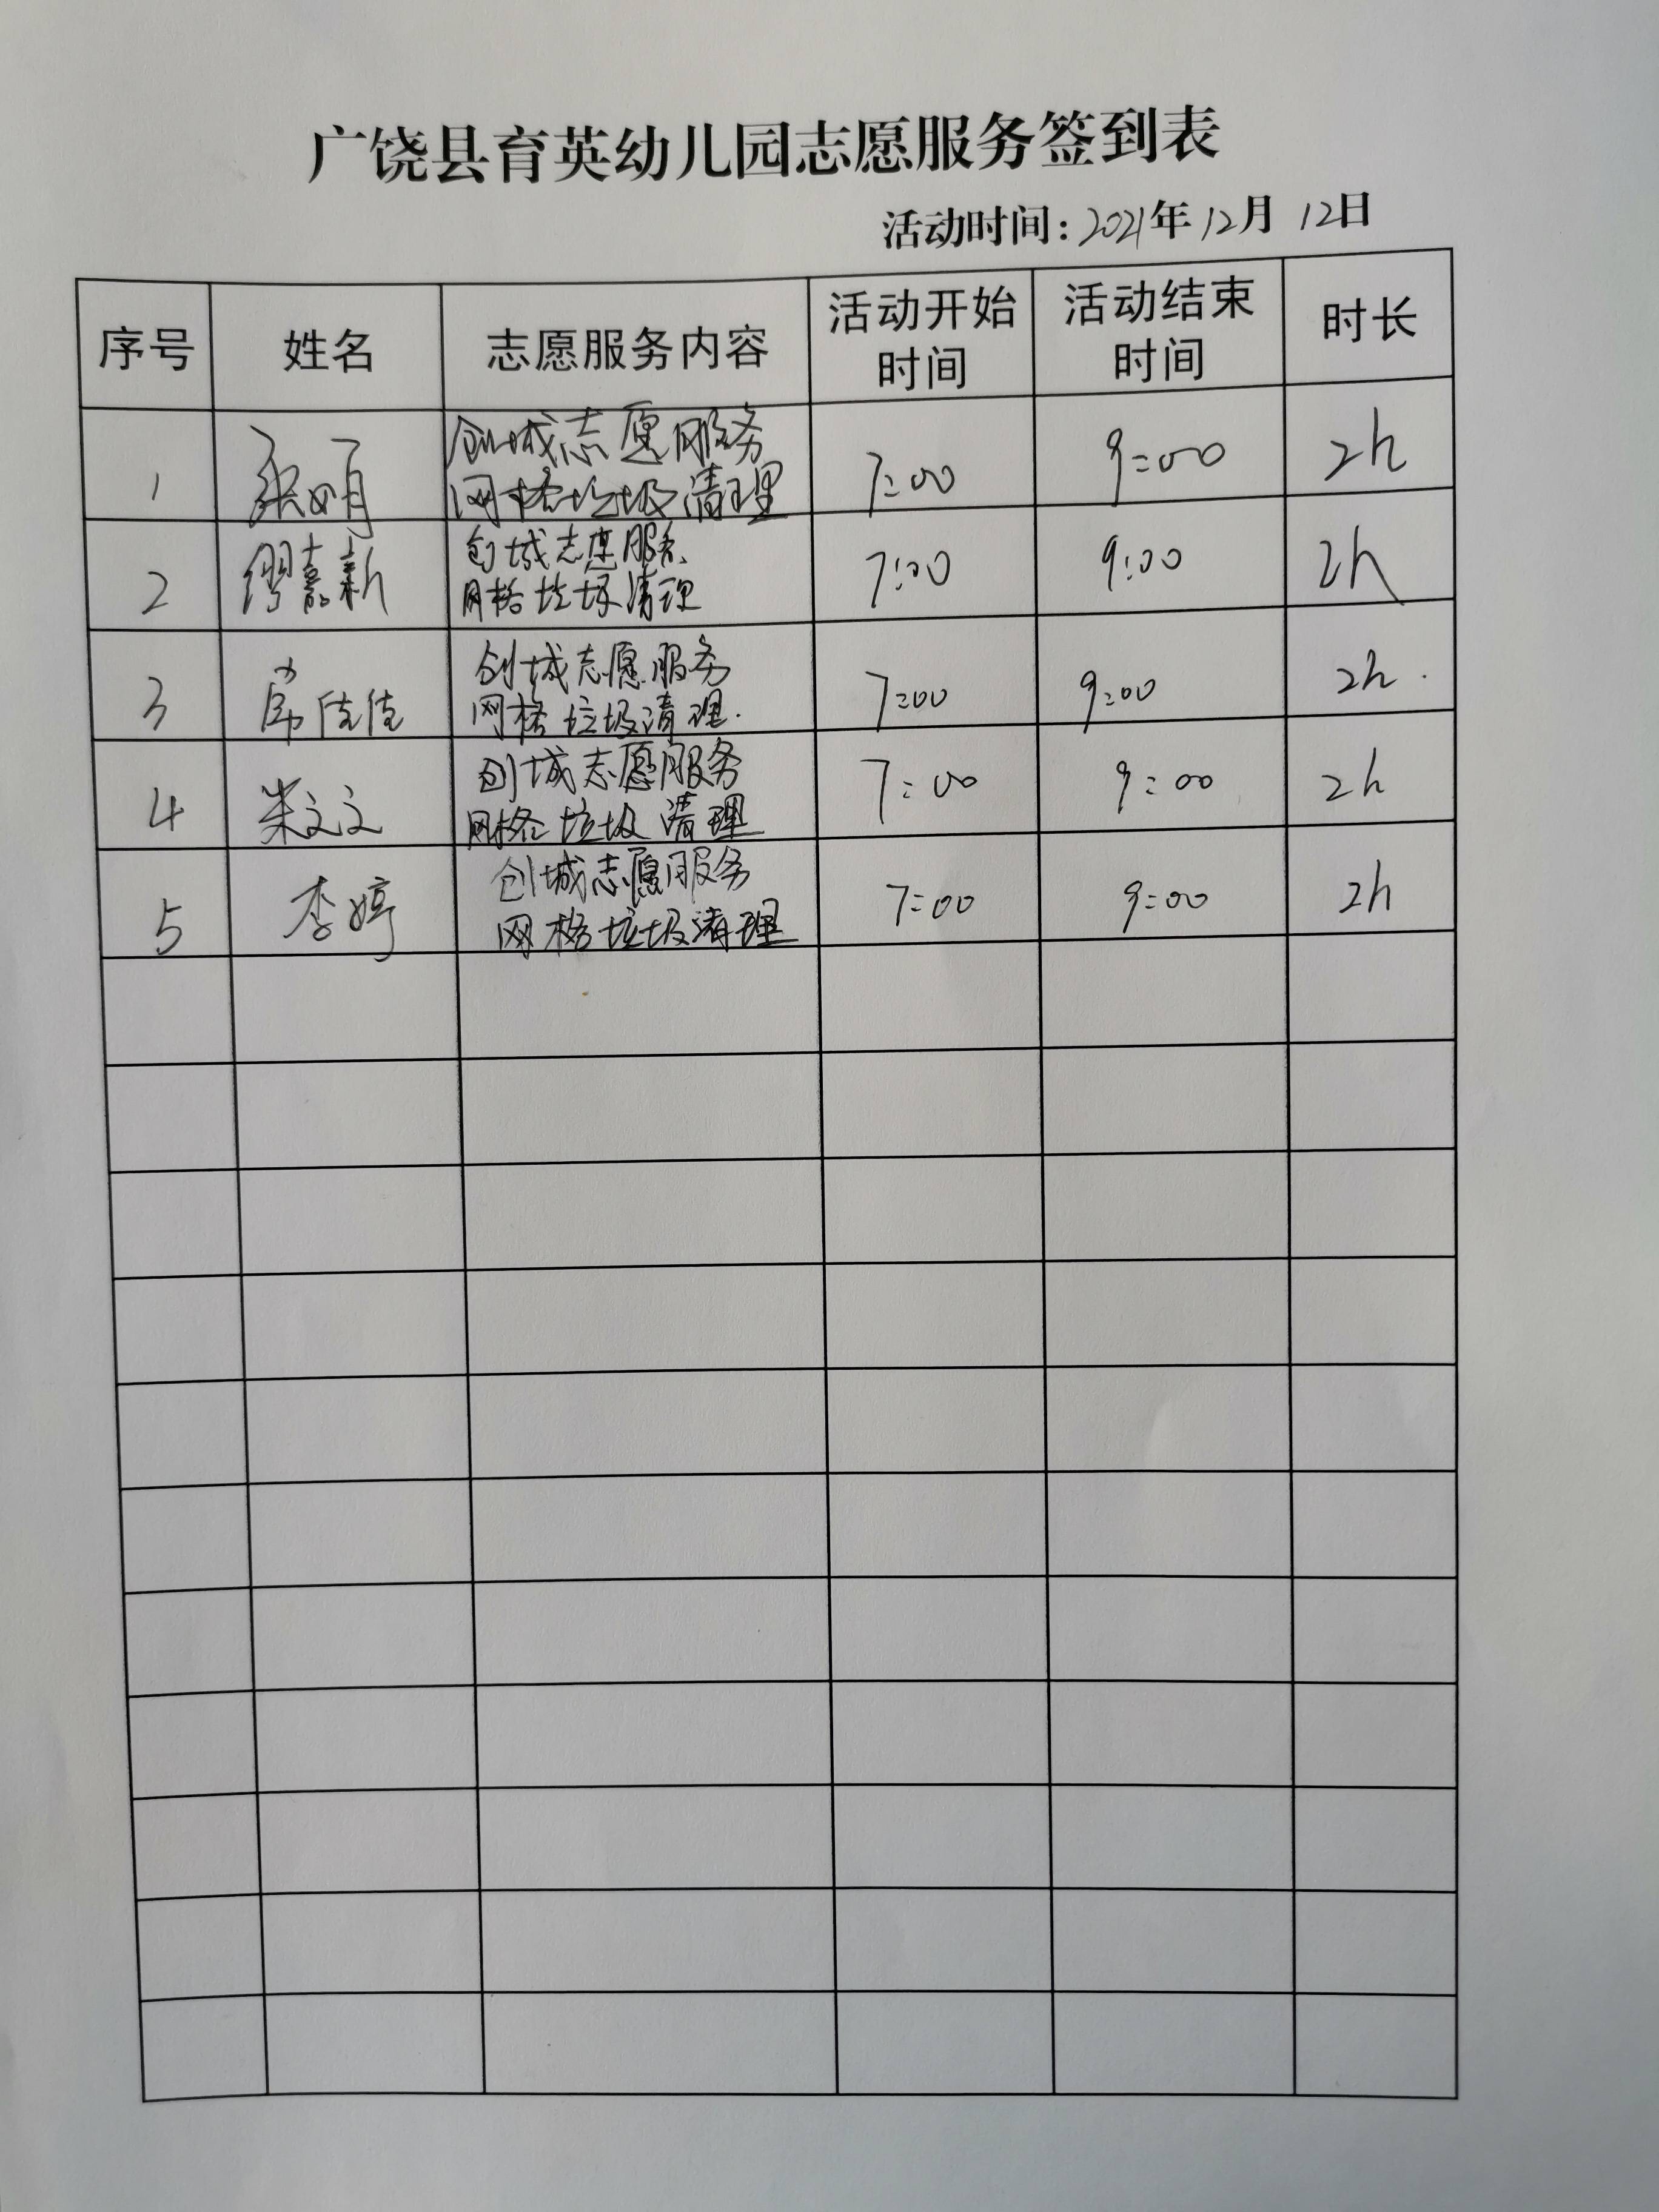 广饶县育英幼儿园志愿服务签到表
活动时间：2021年12月12日
序号 姓名 志愿服务内容 活动开始时间 活动结束时间 时长
1 创城志愿服务 7:00 9:00 2h
网格垃圾清理
2 缪嘉新 创城志愿服务 7:00 9:00 2h
网格垃圾清理
3 佳佳 创城志愿服务 7:00 9:00 2h.
网格垃圾清理.
4 朱文文 创城志愿服务 7:00 9:00 2h
网格垃圾清理
5 李婷 创城志愿服务 7:00 9:00 2h
网格垃圾清理